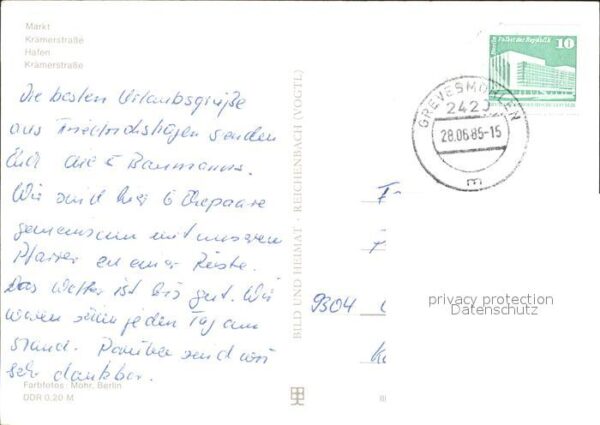 Markt
Krämerstraße
Hafen
Krämerstraße
Die besten Urlaubsgrüße
aus Friedrichshagen senden
Euch die 5 Baumanns.
Wir sind hier 6 Ehepaare
gemeinsam mit unserem
Pfarrer zu einer Rüste.
Das Wetter ist bis gut. Wir
waren schon jeden Tag am
Strand. Darüber sind wir
sehr dankbar.
Farbfotos: Mohr, Berlin
DDR 0,20 M
BILD UND HEIMAT · REICHENBACH (VOGTL)
Berlin Palast der Republik
10
GREVESMÜHLEN
2420
28.06.85-15
m
9304
privacy protection
Datenschutz